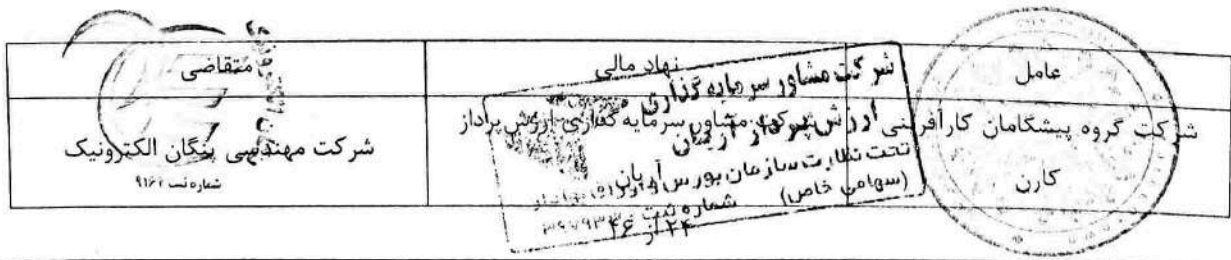 عامل
نهاد مالی
متقاضی
شرکت گروه پیشگامان کارآفرینی
کارن
شرکت مشاور سرمایه گذاری ارزش پرداز
آریان
شرکت مهندسی پنگان الکترونیک
شماره ثبت ۹۱۶۲
شرکت مشاور سرمایه گذاری
ارزش پرداز آریان
تحت نظارت سازمان بورس و اوراق بهادار
(سهامی خاص) شماره ثبت
۲۴ از ۴۶